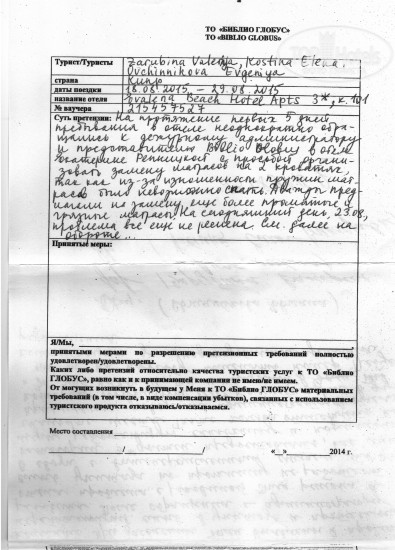 ТО «БИБЛИО ГЛОБУС»
ТО «BIBLIO GLOBUS»
Турист/Туристы Zarubina Valeria, Kostina Elena,
Ovchinnikova Evgeniya
страна Кипр
даты поездки 18.08.2015 – 29.08.2015
название отеля Beach Hotel Apts 3*, к. 101
№ ваучера 215457527
Суть претензии: На протяжение первых 5 дней
пребывания в отеле неоднократно обра-
щались к дежурному администратору
и представителю Biblio Globus в отеле
Екатерине с просьбой органи-
зовать замену матрасов на 2 кроватях,
так как из-за изношенности пружин мат-
расов было невозможно спать. пред-
лагали на замену, еще более и
грязные матрасы. На сегодняшний день, 23.08,
проблема все еще не решена. См. далее на
обороте...
Принятые меры:
Я/Мы,
принятыми мерами по разрешению претензионных требований полностью
удовлетворен/удовлетворены.
Каких либо претензий относительно качества туристских услуг к ТО «Библио
ГЛОБУС», равно как и к принимающей компании не имею/не имеем.
От могущих возникнуть в будущем у Меня к ТО «Библио ГЛОБУС» материальных
требований (в том числе, в виде компенсации убытков), связанных с использованием
туристского продукта отказываюсь/отказываемся.
Место составления
/ / «__» 2014 г.